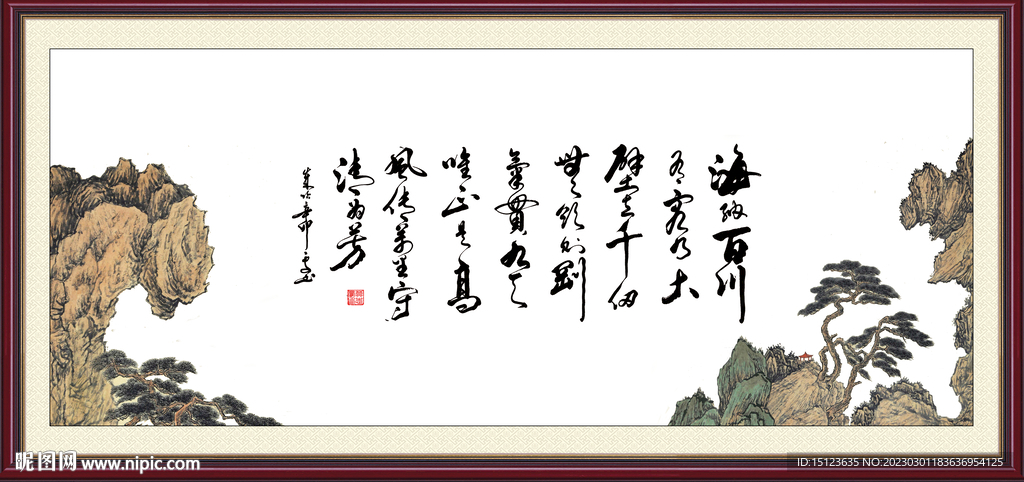 海納百川
有容乃大
壁立千仞
無欲則剛
氣貫九天
唯正是高
風傳萬里守
清為芳
昵图网 www.nipic.com
ID:15123635 NO:20230301183636954125